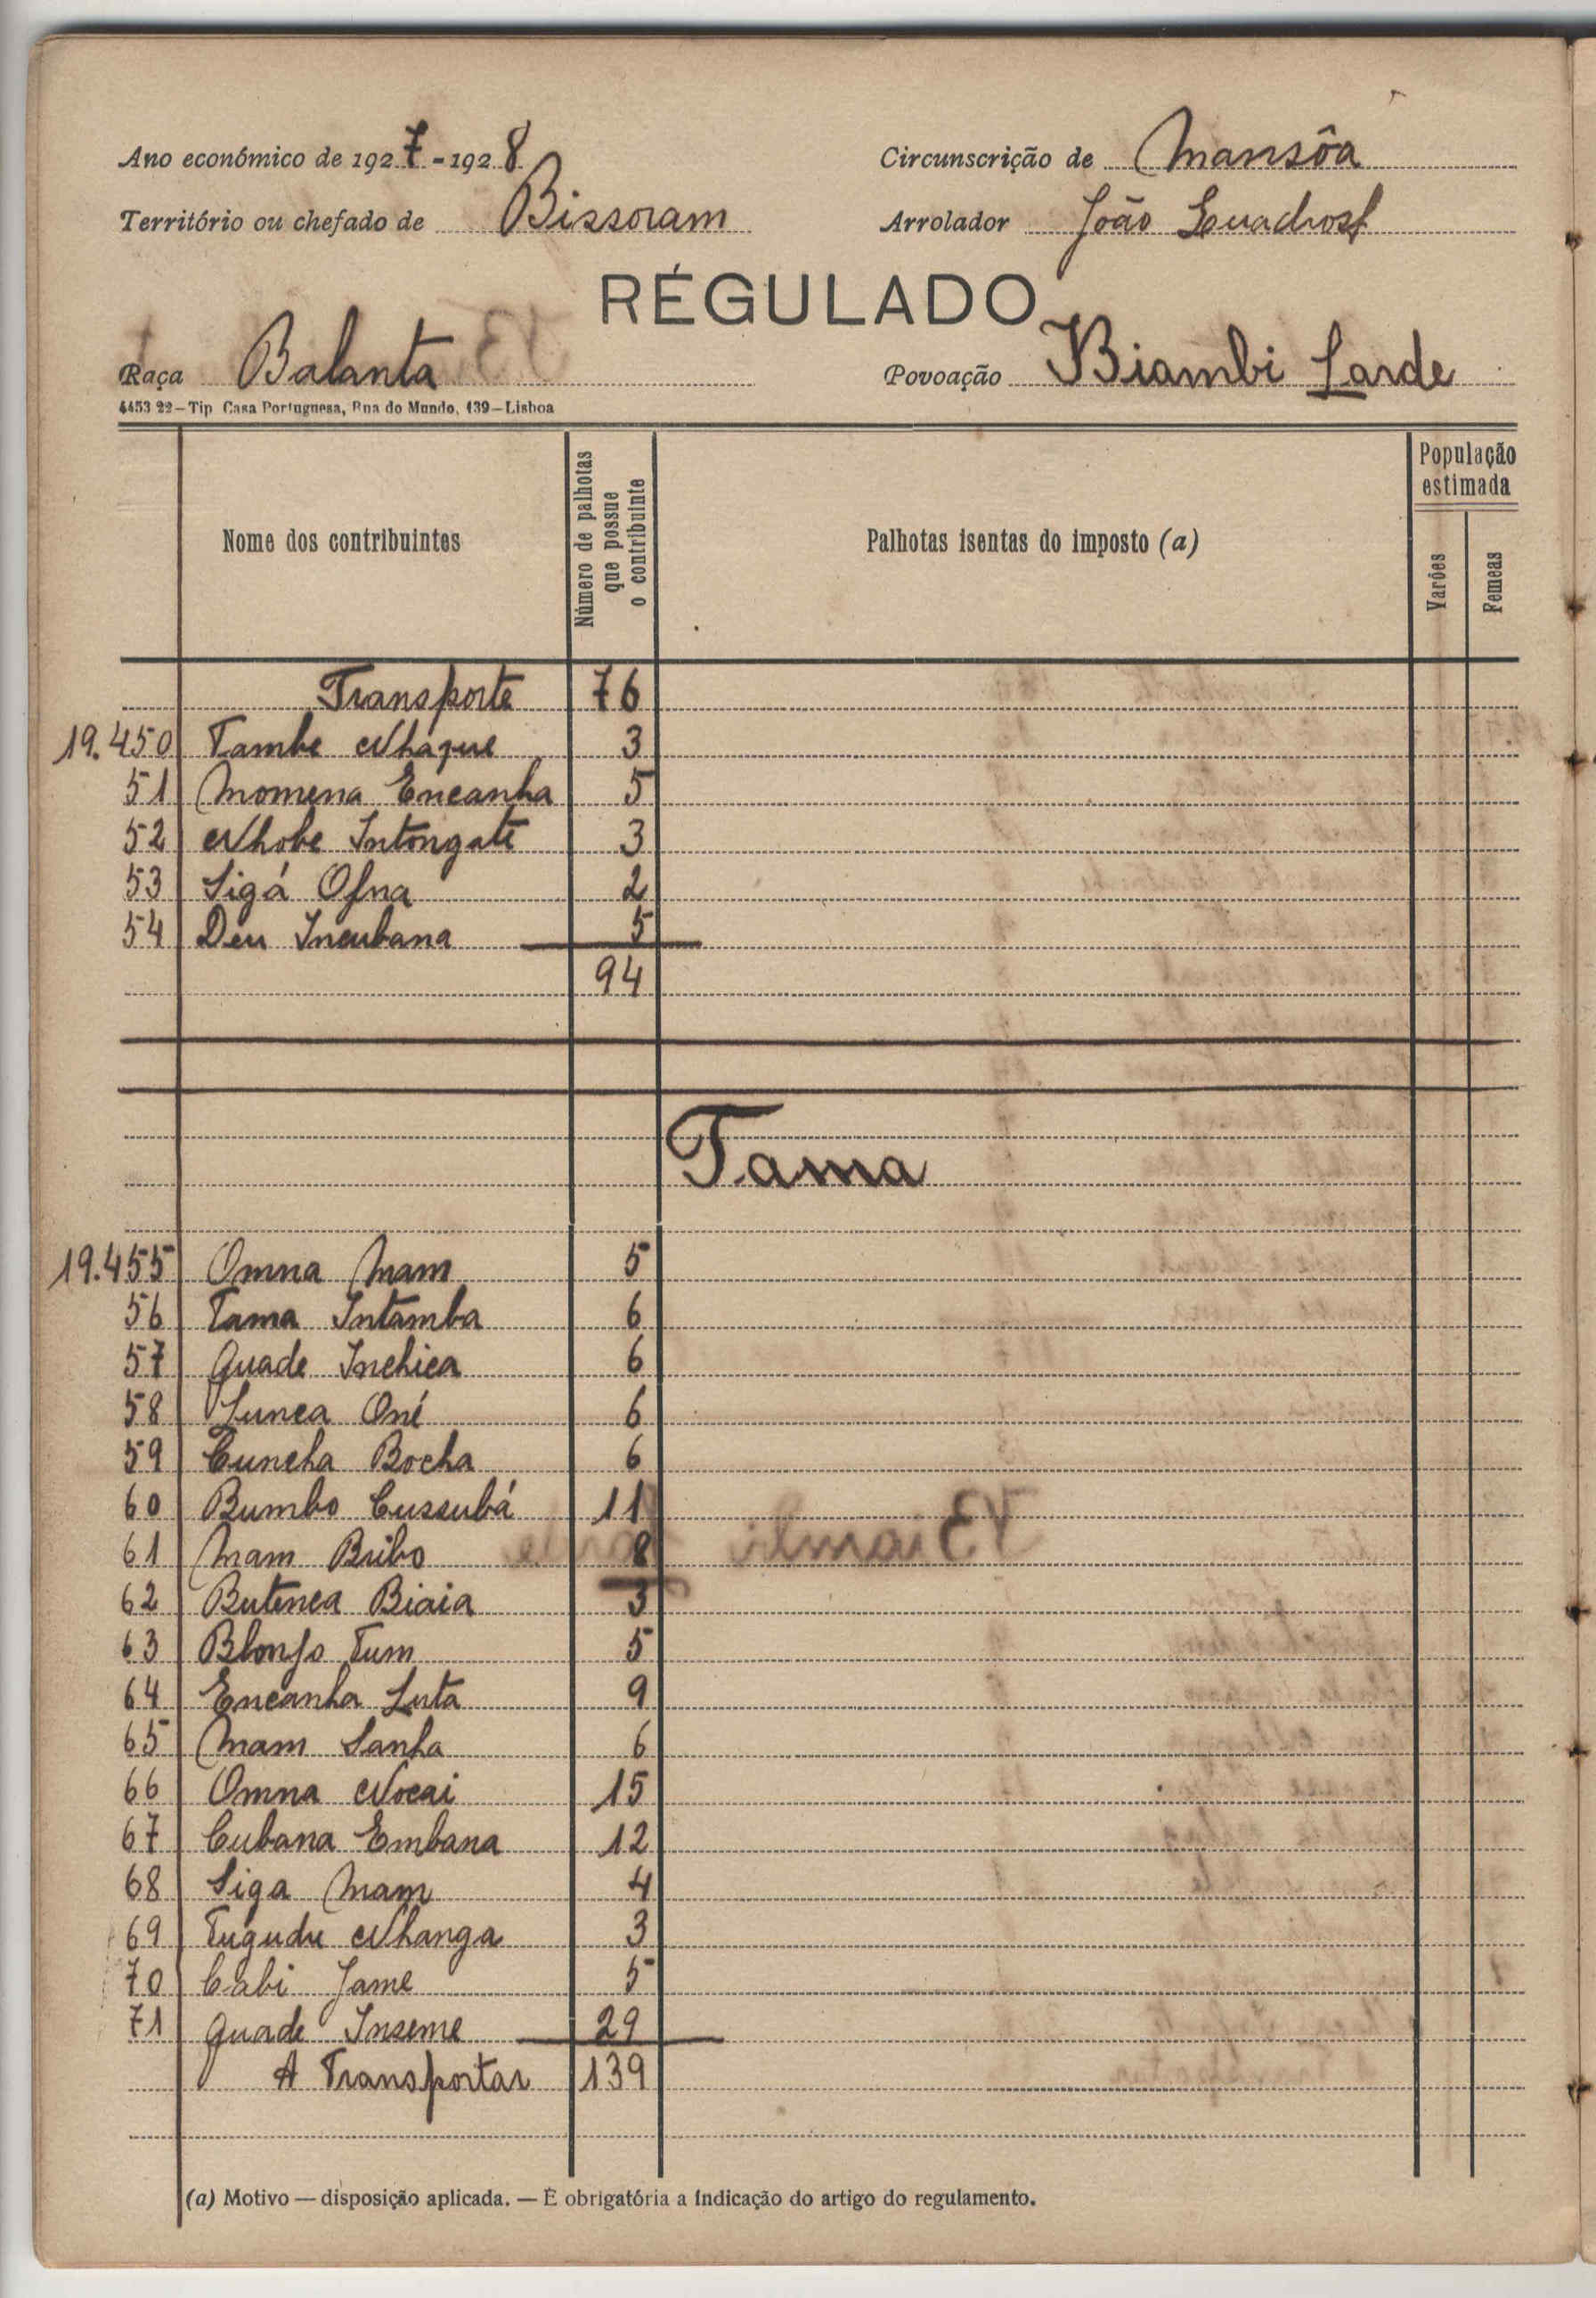 Ano económico de 1927-1928
Circunscrição de Mansôa
Território ou chefado de Bissoram
Arrolador João
RÉGULADO
Raça Balanta
Povoação Biambi Larde
4453 22—Tip Casa Portuguesa, Rua do Mundo, 139—Lisboa
Nome dos contribuintes
Número de palhotas que possue o contribuinte
Palhotas isentas do imposto (a)
População estimada
Varões
Femeas
Transporte 76
19.450 Tambe Nhaque 3
51 Momena Encanha 5
52 Nhobe Intongate 3
53 Sigá Ofna 2
54 Deu Incubana 5
94
Tama
19.455 Omna Mam 5
56 Tama Intamba 6
57 Quade Inchica 6
58 Lunca Oné 6
59 Cuncha Bocha 6
60 Bumbo Cussubá 11
61 Mam Bribo 8
62 Butenca Biaia 3
63 Blonfo Tum 5
64 Encanha Luta 9
65 Mam Sanha 6
66 Omna Nocai 15
67 Cubana Embana 12
68 Siga Mam 4
69 Tugudu Nhanga 3
70 Cabi Jame 5
71 Quade Inseme 29
A Transportar 139
(a) Motivo — disposição aplicada. — É obrigatória a indicação do artigo do regulamento.